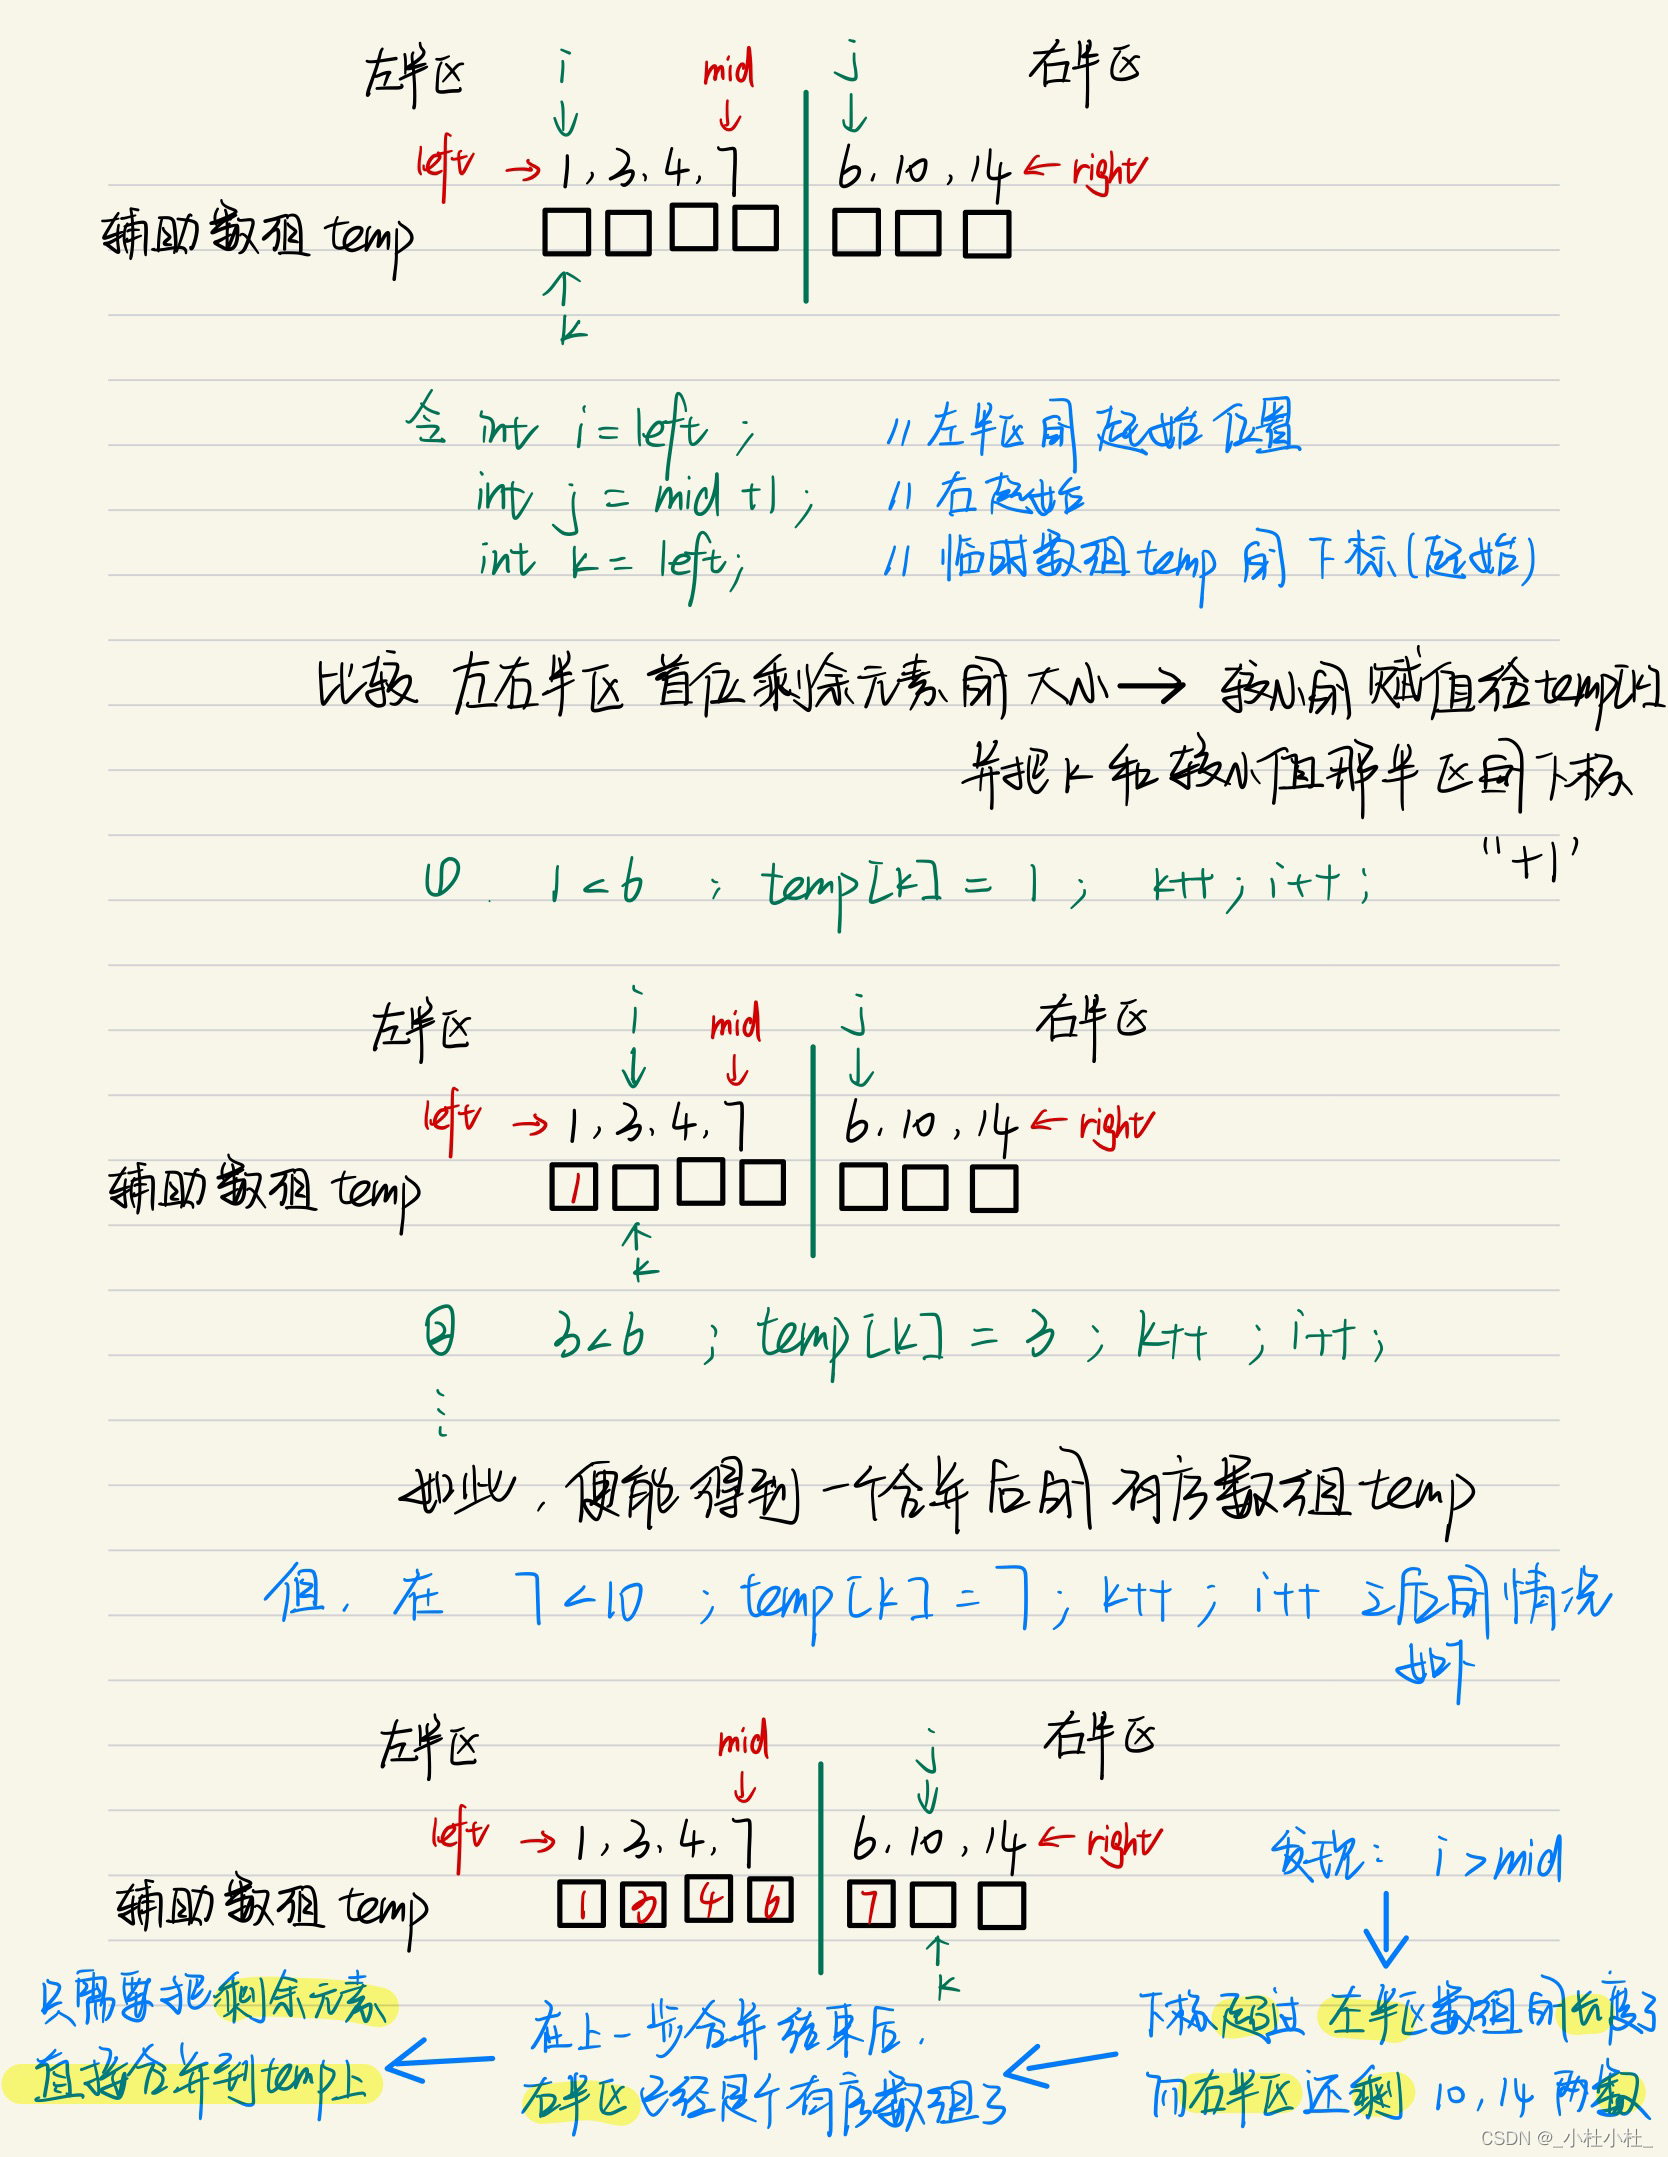 左半区 i mid j 右半区
left → 1, 3, 4, 7 6, 10, 14 ← right
辅助数组 temp
k
令 int i = left ; // 左半区的起始位置
int j = mid +1 ; // 右起始
int k = left; // 临时数组temp的下标(起始)
比较 左右半区 首位剩余元素的大小 → 较小的赋值给temp[k]
并把k和较小值那半区的下标
"+1"
① 1 < 6 ; temp[k] = 1 ; k++ ; i++ ;
左半区 i mid j 右半区
left → 1, 3, 4, 7 6, 10, 14 ← right
辅助数组 temp 1
k
② 3 < 6 ; temp[k] = 3 ; k++ ; i++ ;
⋮
如此, 便能得到一个合并后的有序数组temp
值, 在 7 < 10 ; temp[k] = 7 ; k++ ; i++ 之后的情况
如下
左半区 mid j 右半区
left → 1, 3, 4, 7 6, 10, 14 ← right
发现: i > mid
辅助数组 temp 1 3 4 6 7
k
下标超过左半区数组的长度了
而右半区还剩 10, 14 两数
在上一步合并结束后,
右半区已经是个有序数组了
只需要把剩余元素
直接合并到temp上
CSDN @_小杜小杜_